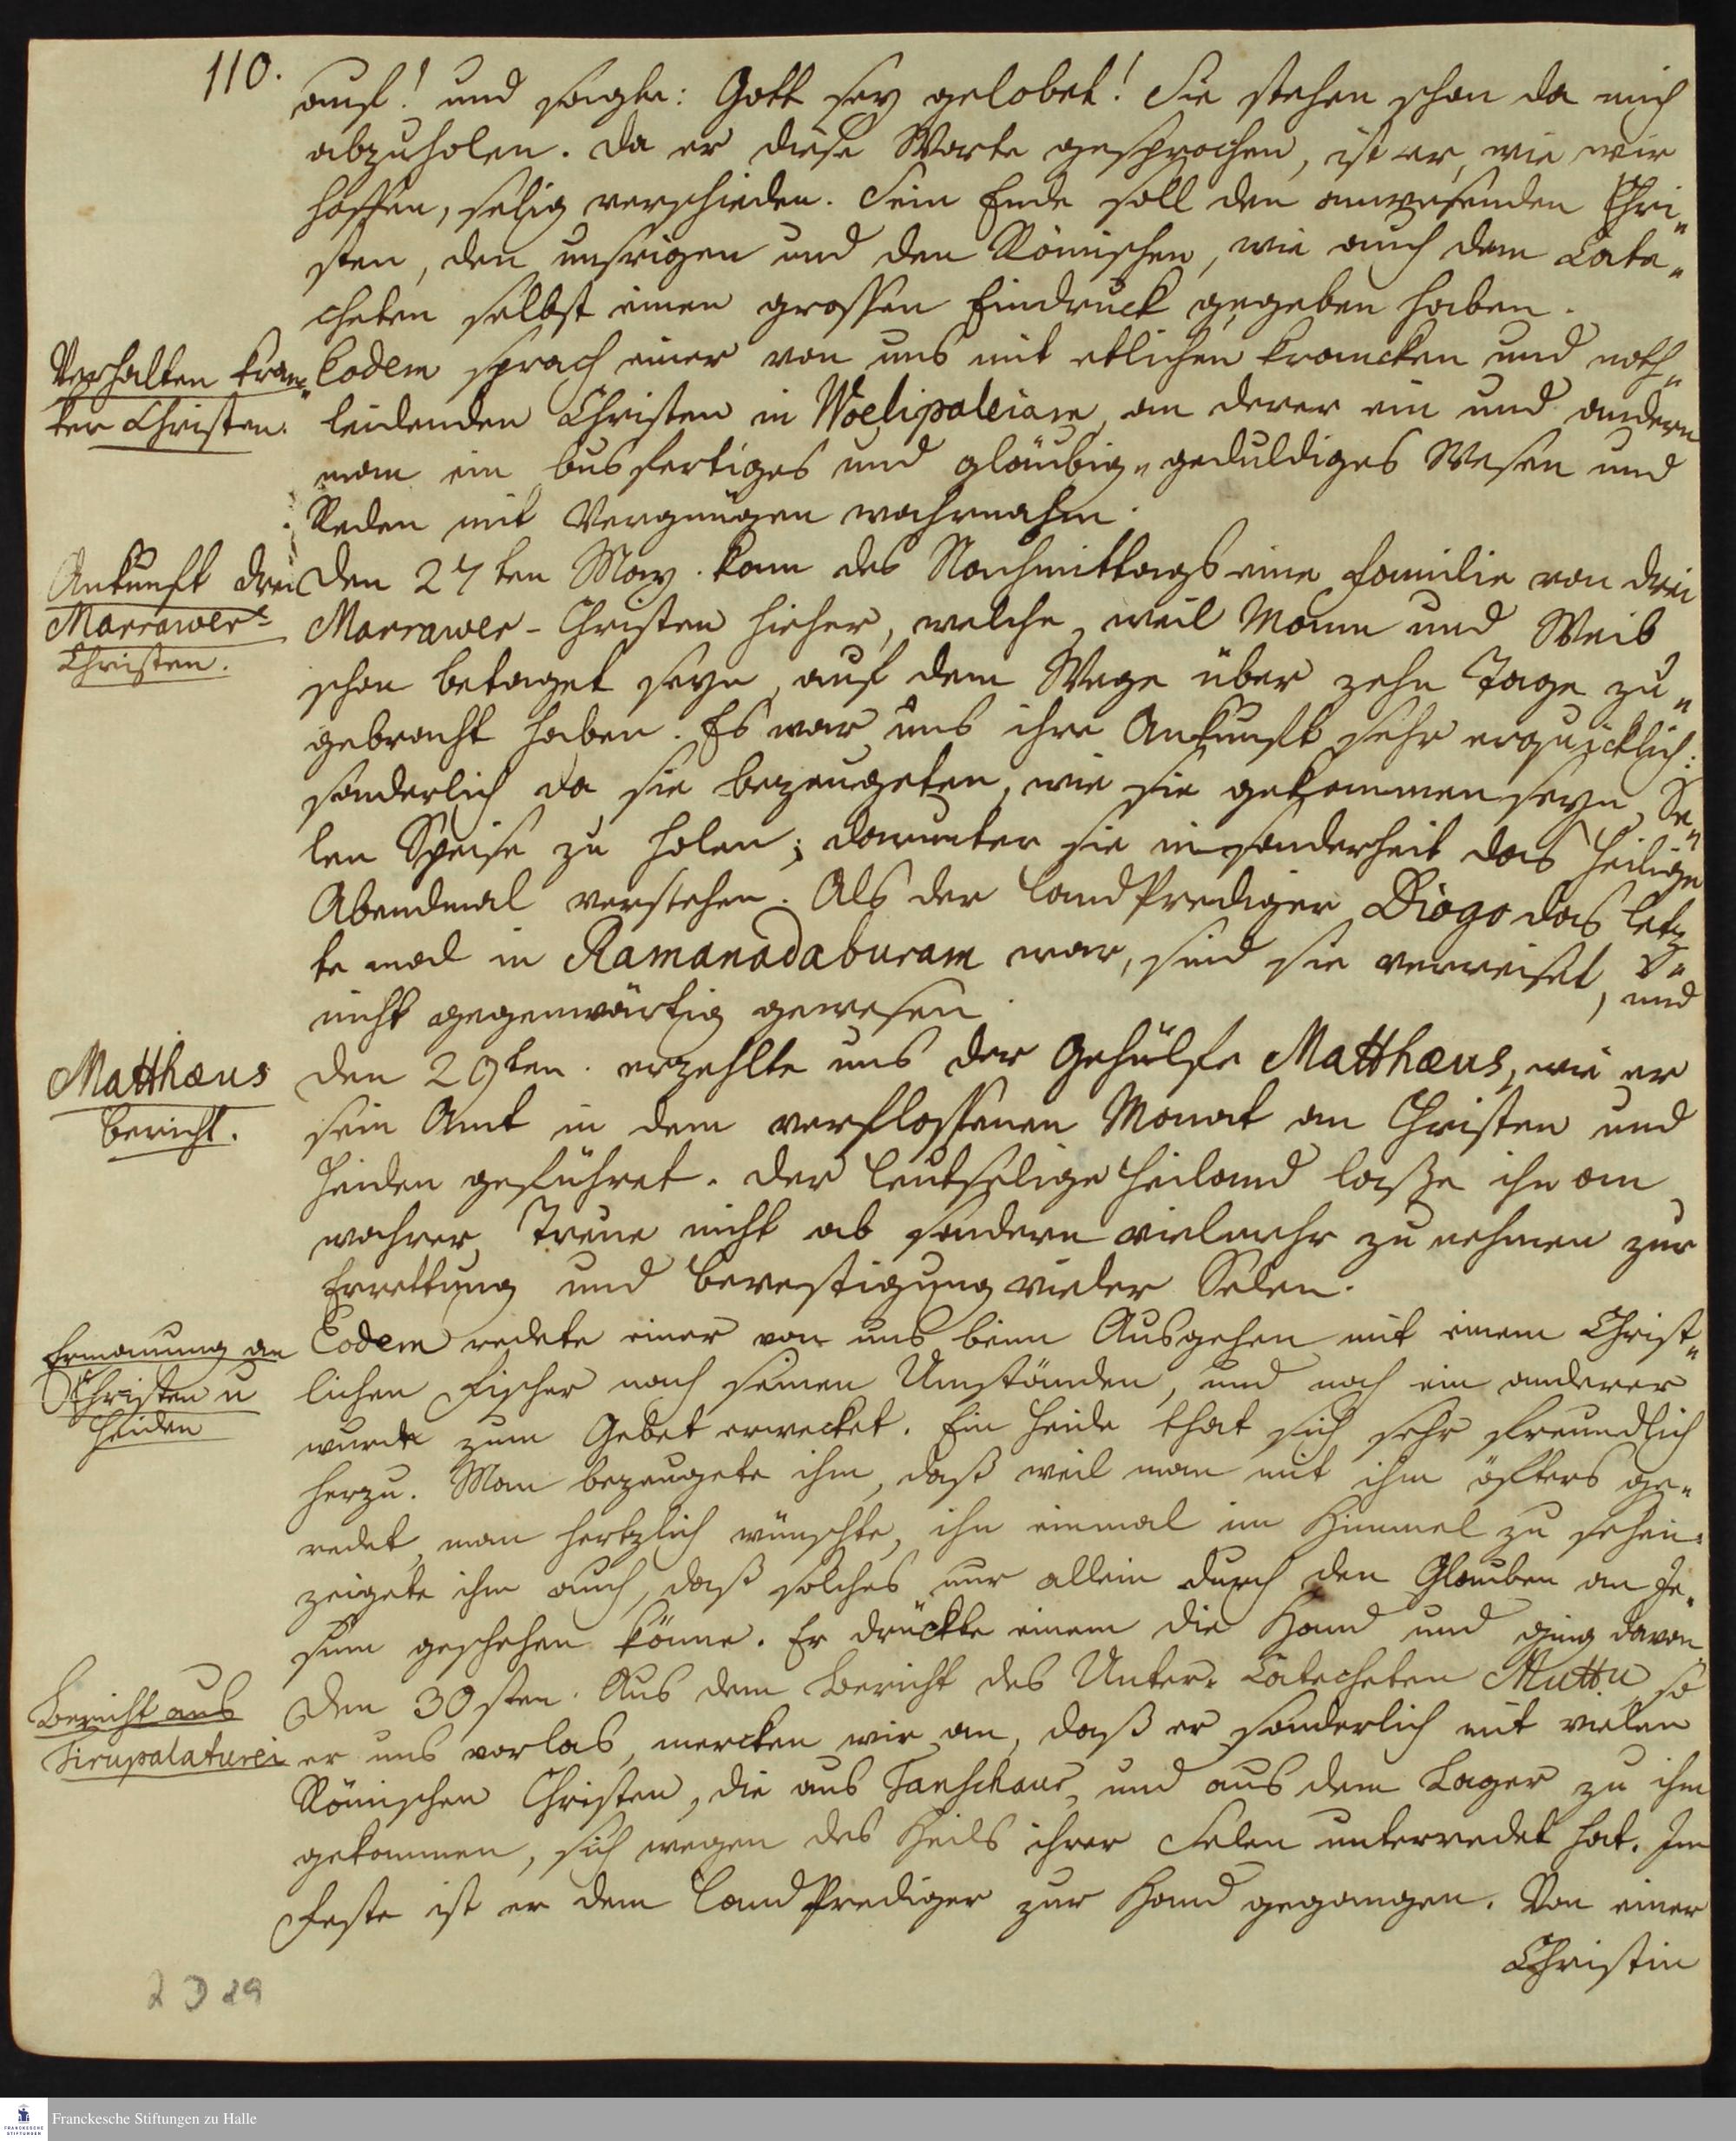 110.
auf! und sagte: Gott sey gelobet! Sie stehen schon da mich
abzuholen. Da er diese Worte gesprochen, ist er, wie wir
hoffen, selig verschieden. Sein Ende soll den anwesenden Chri„
sten, den unsrigen und den Römischen, wie auch dem Cate„
cheten selbst einen grossen Eindruck gegeben haben.
Verhalten kran„
ker Christen.
Eodem sprach einer von uns mit etlichen krancken und noth„
leidenden Christen in Woelipaleiam, an derer ein und andern
man ein busfertiges und gläubig„ geduldiges Wesen und
Reden mit Vergnügen wahrnahm.
Ankunft drei
Marrawer-
Christen.
Den 27ten May. kam des Nachmittags eine Familie von drei
Marrawer-Christen hieher, welche, weil Mann und Weib
schon betaget seyn, auf dem Wege über zehn Tage zu„
gebracht haben. Es war uns ihre Ankunft sehr erquicklich:
sonderlich da sie bezeugeten, wie sie gekommen seyn, Se„
len Speise zu holen; darunter sie insonderheit das heilige
Abendmal verstehen. Als der Land Prediger Diogo das letz„
te mal in Ramanadaburam war, sind sie verreiset, und
nicht gegenwärtig gewesen.
Matthæus
Bericht.
Den 29ten. erzehlte uns der Gehülfe Matthæus, wie er
sein Amt in dem verflossenen Monat an Christen und
Heiden geführet. Der leutselige Heiland lasse ihn an
wahrer Treue nicht ab sondern vielmehr zu nehmen zur
Errettung und Bevestigung vieler Selen.
Ermanung an
Christen u
Heiden
Eodem redete einer von uns beim Ausgehen mit einem Christ„
lichen Fischer nach seinen Umständen, und noch ein anderer
wurde zum Gebet erwecket. Ein Heide that sich sehr freundlich
herzu. Man bezeugete ihm, daß weil man mit ihm öfters ge„
redet, man hertzlich wünschte, ihn einmal im Himmel zu sehen:
zeigete ihm auch, daß solches nur allein durch den Glauben an Je„
sum geschehen könne. Er drückte einem die Hand und ging davon.
Bericht aus
Tirupalaturei
Den 30sten. Aus dem Bericht des Unter-Catecheten Muttu, so
er uns vorlas, mercken wir an, daß er sonderlich mit vielen
Römischen Christen, die aus Tanschaur, und aus dem Lager zu ihm
gekommen, sich wegen des Heils ihrer Selen unterredet hat. Im
Feste ist er dem Land Prediger zur Hand gegangen. Von einer
Christin
Franckesche Stiftungen zu Halle
FRANCKESCHE
STIFTUNGEN